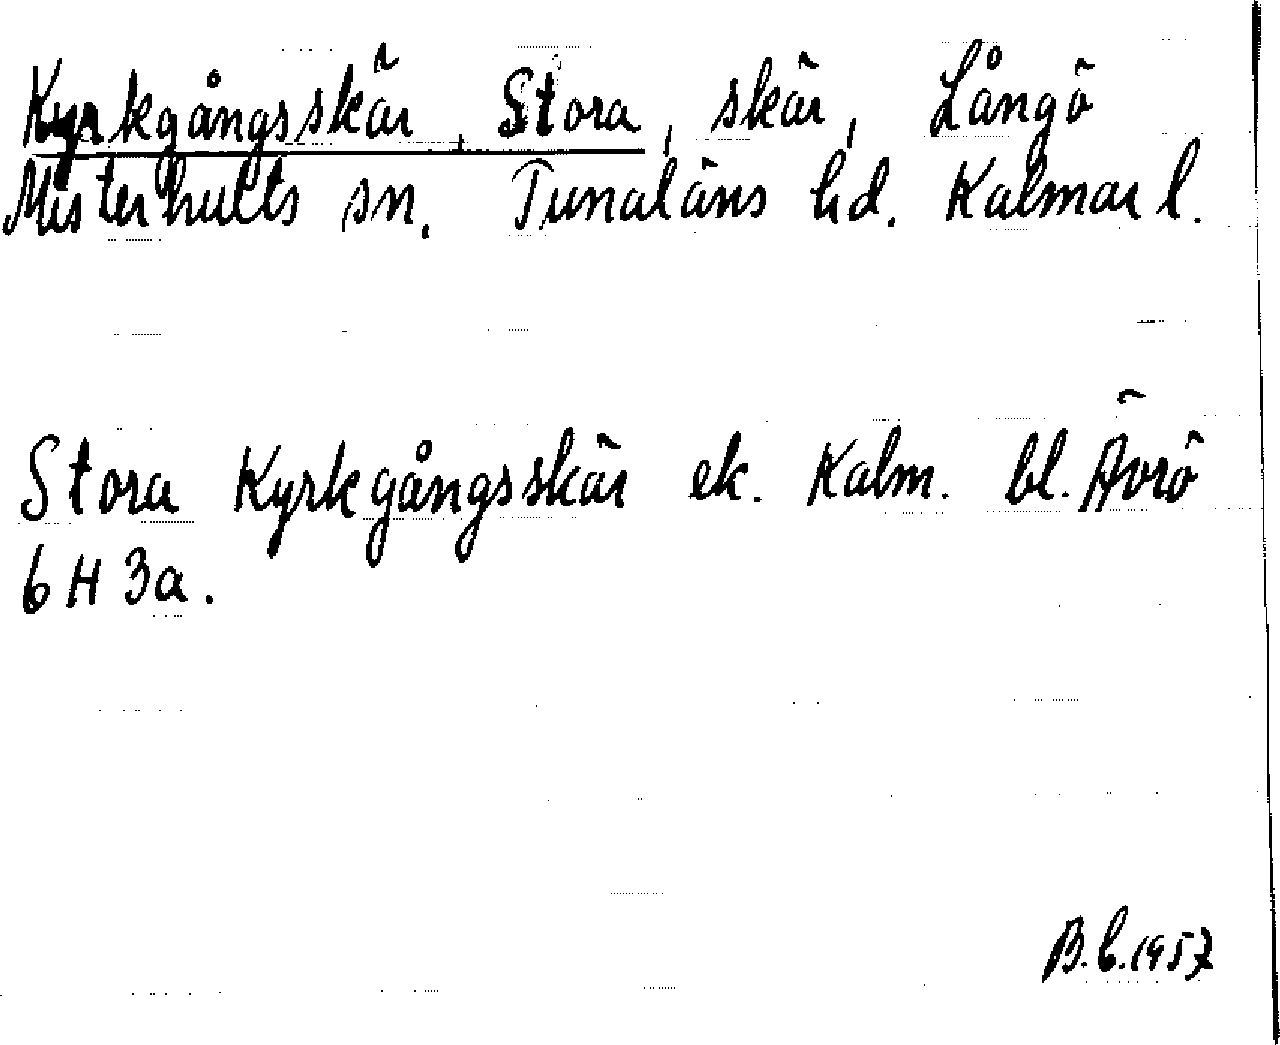 Kyrkgångsskär, Stora, skär, Långö
Misterhults sn. Tunaläns hd. Kalmar l.
Stora Kyrkgångsskär ek. Kalm. bl. Ävrö
6 H 3a.
B.C. 1957